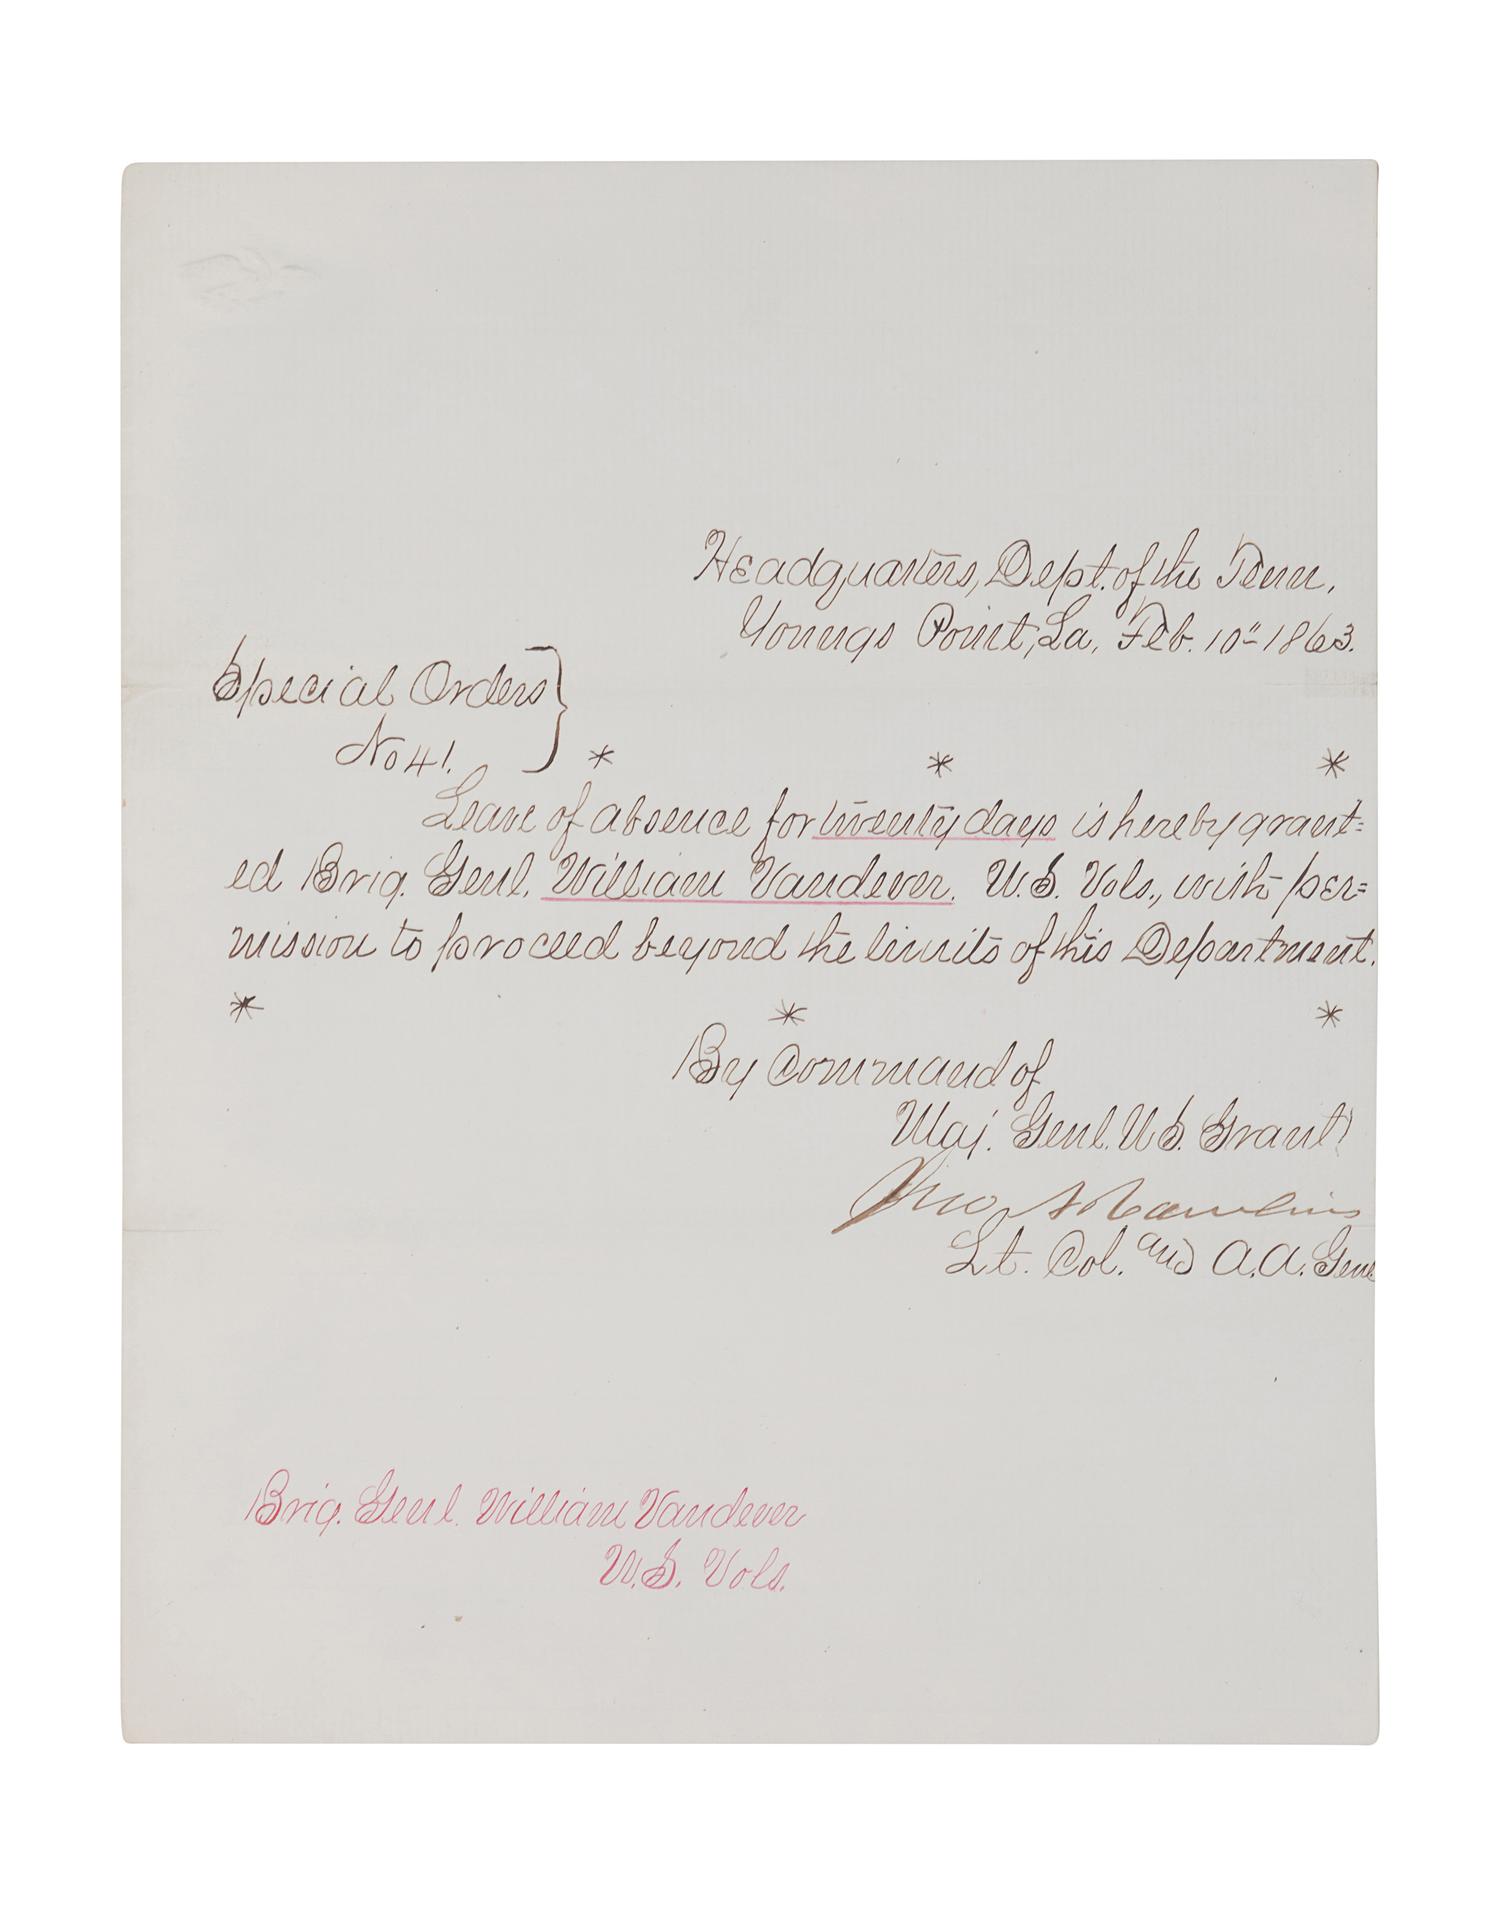 Headquarters, Dept. of the Tenn.
Youngs Point, La, Feb. 10" 1863.
Special Orders
No 41.
* * *
Leave of absence for twenty days is hereby grant=
ed Brig. Genl. William Vandever. U.S. Vols., with per=
mission to proceed beyond the limits of this Department.
* * *
By Command of
Maj. Genl. U.S. Grant
Jno A Rawlins
Lt. Col. and A.A. Genl
Brig. Genl. William Vandever
U.S. Vols.